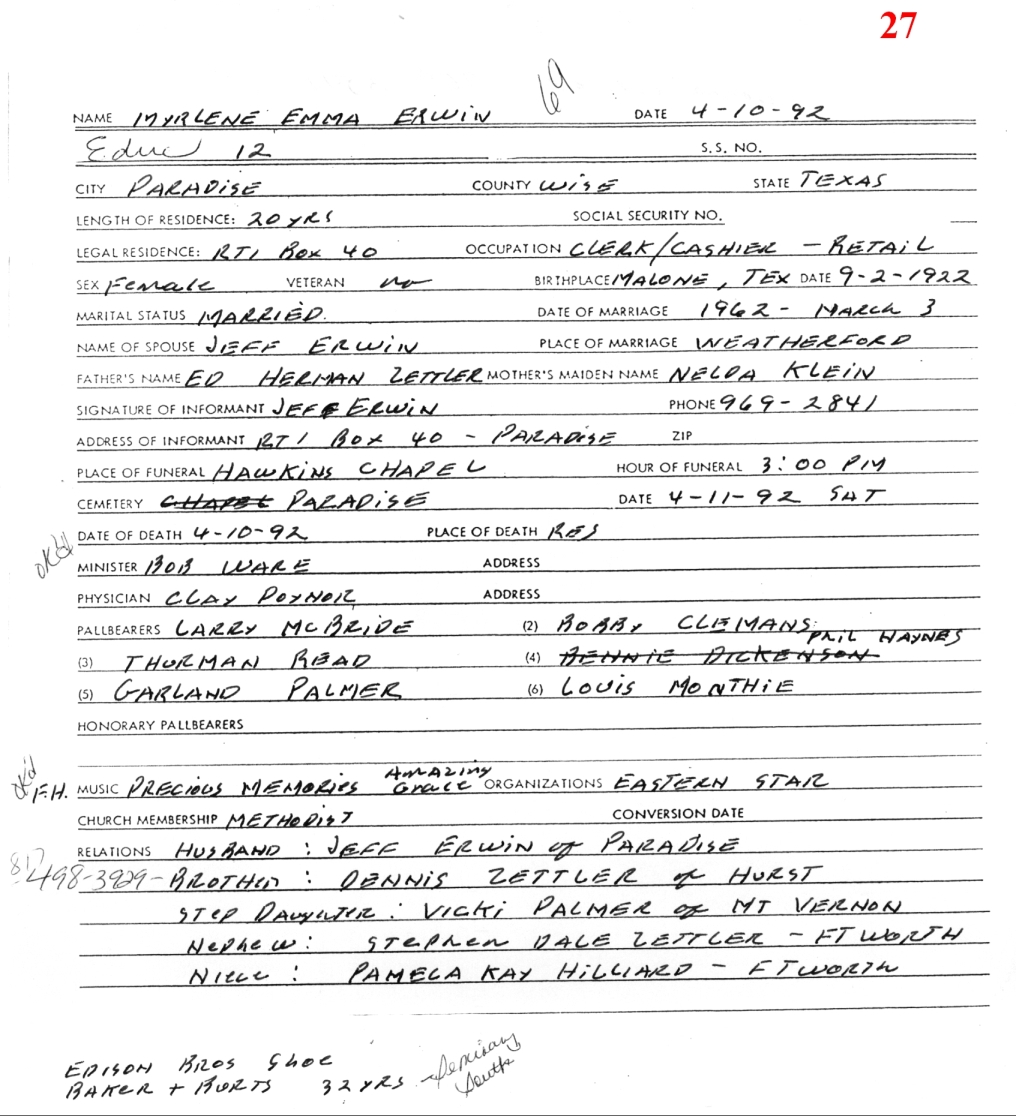 27
69
NAME MYRLENE EMMA ERWIN DATE 4-10-92
Educ 12 S.S. NO.
CITY PARADISE COUNTY WISE STATE TEXAS
LENGTH OF RESIDENCE: 20 YRS SOCIAL SECURITY NO.
LEGAL RESIDENCE: RT1 Box 40 OCCUPATION CLERK/CASHIER - RETAIL
SEX Female VETERAN no BIRTHPLACE MALONE, TEX DATE 9-2-1922
MARITAL STATUS MARRIED. DATE OF MARRIAGE 1962 - MARCH 3
NAME OF SPOUSE JEFF ERWIN PLACE OF MARRIAGE WEATHERFORD
FATHER'S NAME ED HERMAN ZETTLER MOTHER'S MAIDEN NAME NELDA KLEIN
SIGNATURE OF INFORMANT JEFF ERWIN PHONE 969-2841
ADDRESS OF INFORMANT RT1 BOX 40 - PARADISE ZIP
PLACE OF FUNERAL HAWKINS CHAPEL HOUR OF FUNERAL 3:00 PM
CEMETERY CHAPEL PARADISE DATE 4-11-92 SAT
DATE OF DEATH 4-10-92 PLACE OF DEATH RES
OK'd MINISTER BOB WARE ADDRESS
PHYSICIAN CLAY POYNOR ADDRESS
PALLBEARERS LARRY McBRIDE (2) BOBBY CLEMANS
PHIL HAYNES
(3) THURMAN READ (4) BENNIE DICKENSON
(5) GARLAND PALMER (6) LOUIS MONTHIE
HONORARY PALLBEARERS
OK'd F.H. MUSIC PRECIOUS MEMORIES AMAZING Grace ORGANIZATIONS EASTERN STAR
CHURCH MEMBERSHIP METHODIST CONVERSION DATE
RELATIONS HUSBAND : JEFF ERWIN of PARADISE
817 498-3929 - BROTHER : DENNIS ZETTLER of HURST
STEP DAUGHTER : VICKI PALMER of MT VERNON
NEPHEW : STEPHEN DALE ZETTLER - FT WORTH
NIECE : PAMELA KAY HILLIARD - FT WORTH
EDISON BROS SHOE
BAKER + BURTS 32 YRS - Seminary South